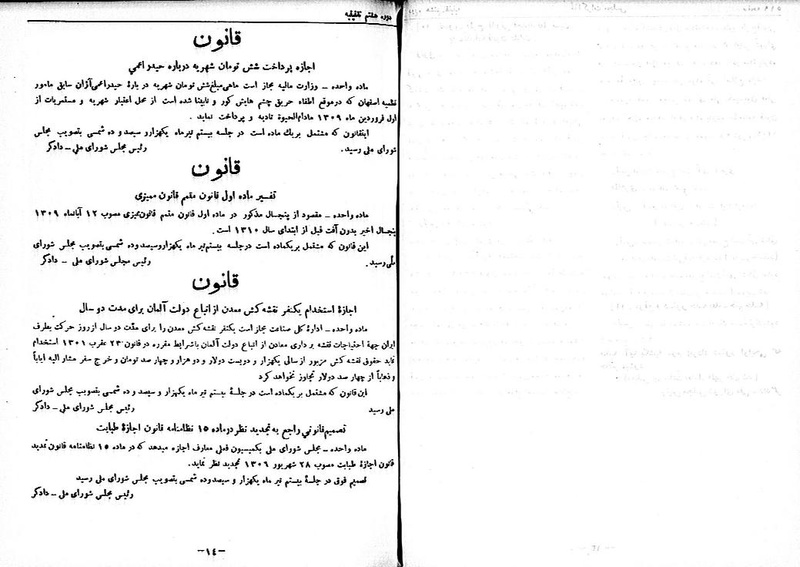 دوره هشتم تقنینیه
قانون
اجازه پرداخت شش تومان شهریه درباره حیدر اعمی
ماده واحده ـ وزارت مالیه مجاز است ماهی مبلغ شش تومان شهریه در بارهٔ حیدر اعمی آژان سابق مامور
نظمیه اصفهان که در موقع اطفاء حریق چشم هایش کور و نابینا شده است از محل اعتبار شهریه و مستمریات از
اول فروردین ماه ۱۳۰۹ مادام‌الحیوة تادیه و پرداخت نماید .
اینقانون که مشتمل بر یك ماده است در جلسه بیستم تیر ماه یکهزار و سیصد و ده شمسی بتصویب مجلس
شورای ملی رسید . رئیس مجلس شورای ملی ـ دادگر
قانون
تفسیر ماده اول قانون متمم قانون ممیزی
ماده واحده ـ مقصود از پنجسال مذکور در ماده اول قانون متمم قانون ممیزی مصوب ۱۲ آبانماه ۱۳۰۹
پنجسال اخیر بدون آفت قبل از ابتدای سال ۱۳۱۰ است .
این قانون که مشتمل بر یکماده است در جلسه بیستم تیر ماه یکهزار و سیصد و ده شمسی بتصویب مجلس شورای
ملی رسید . رئیس مجلس شورای ملی ـ دادگر
قانون
اجازهٔ استخدام یکنفر نقشه کش معدن از اتباع دولت آلمان برای مدت دو ـ سال
ماده واحده ـ ادارهٔ کل صناعت مجاز است یکنفر نقشه کش معدن را برای مدّت دو سال از روز حرکت بطرف
ایران جهة احتیاجات نقشه برداری معادن از اتباع دولت آلمان باشرایط مقرره در قانون ۲۳ عقرب ۱۳۰۱ استخدام
نماید حقوق نقشه کش مزبور از سالی یکهزار و دویست دولار و دو هزار و چهار صد تومان و خرج سفر مشار الیه ایاباً
و ذهاباً از چهار صد دولار تجاوز نخواهد کرد
این قانون که مشتمل بر یکماده است در جلسهٔ بیستم تیر ماه یکهزار و سیصد و ده شمسی بتصویب مجلس شورای
ملی رسید رئیس مجلس شورای ملی ـ دادگر
تصمیم قانونی راجع به تجدید نظر در ماده ۱۵ نظامنامه قانون اجازهٔ طبابت
ماده واحده ـ مجلس شورای ملی بکمیسیون فعلی معارف اجازه میدهد که در ماده ۱۵ نظامنامه قانون تمدید
قانون اجازهٔ طبابت مصوب ۲۸ شهریور ۱۳۰۹ تجدید نظر نماید.
تصمیم فوق در جلسهٔ بیستم تیر ماه یکهزار و سیصد و ده شمسی بتصویب مجلس شورای ملی رسید
رئیس مجلس شورای ملی ـ دادگر
ـ۱٤ـ